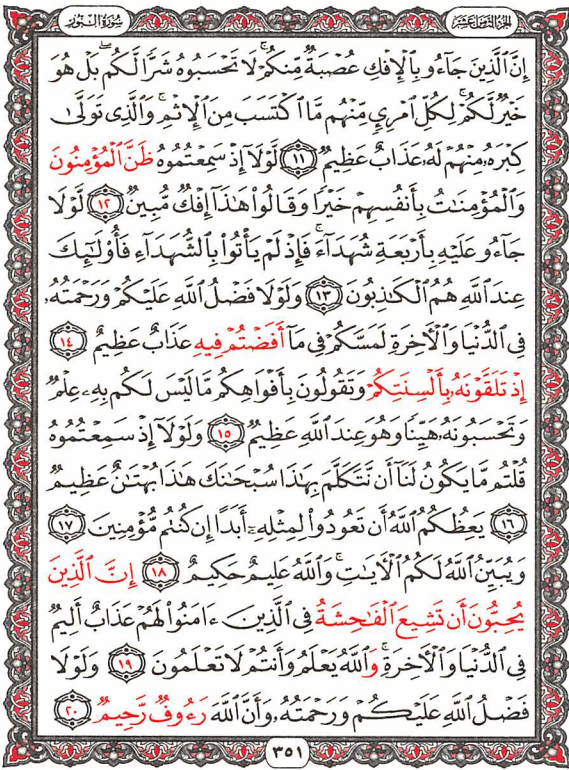 سُورَةُ النُّورِ
الجُزْءُ الثَّامِنَ عَشَرَ
إِنَّ ٱلَّذِينَ جَآءُو بِٱلْإِفْكِ عُصْبَةٌ مِّنكُمْ ۚ لَا تَحْسَبُوهُ شَرًّا لَّكُم ۖ بَلْ هُوَ
خَيْرٌ لَّكُمْ ۚ لِكُلِّ ٱمْرِئٍ مِّنْهُم مَّا ٱكْتَسَبَ مِنَ ٱلْإِثْمِ ۚ وَٱلَّذِى تَوَلَّىٰ
كِبْرَهُۥ مِنْهُمْ لَهُۥ عَذَابٌ عَظِيمٌ ١١ لَّوْلَآ إِذْ سَمِعْتُمُوهُ ظَنَّ ٱلْمُؤْمِنُونَ
وَٱلْمُؤْمِنَٰتُ بِأَنفُسِهِمْ خَيْرًا وَقَالُوا۟ هَٰذَآ إِفْكٌ مُّبِينٌ ١٢ لَّوْلَا
جَآءُو عَلَيْهِ بِأَرْبَعَةِ شُهَدَآءَ ۚ فَإِذْ لَمْ يَأْتُوا۟ بِٱلشُّهَدَآءِ فَأُو۟لَٰٓئِكَ
عِندَ ٱللَّهِ هُمُ ٱلْكَٰذِبُونَ ١٣ وَلَوْلَا فَضْلُ ٱللَّهِ عَلَيْكُمْ وَرَحْمَتُهُۥ
فِى ٱلدُّنْيَا وَٱلْآخِرَةِ لَمَسَّكُمْ فِى مَآ أَفَضْتُمْ فِيهِ عَذَابٌ عَظِيمٌ ١٤
إِذْ تَلَقَّوْنَهُۥ بِأَلْسِنَتِكُمْ وَتَقُولُونَ بِأَفْوَاهِكُم مَّا لَيْسَ لَكُم بِهِۦ عِلْمٌ
وَتَحْسَبُونَهُۥ هَيِّنًا وَهُوَ عِندَ ٱللَّهِ عَظِيمٌ ١٥ وَلَوْلَآ إِذْ سَمِعْتُمُوهُ
قُلْتُم مَّا يَكُونُ لَنَآ أَن نَّتَكَلَّمَ بِهَٰذَا سُبْحَٰنَكَ هَٰذَا بُهْتَٰنٌ عَظِيمٌ
١٦ يَعِظُكُمُ ٱللَّهُ أَن تَعُودُوا۟ لِمِثْلِهِۦٓ أَبَدًا إِن كُنتُم مُّؤْمِنِينَ ١٧
وَيُبَيِّنُ ٱللَّهُ لَكُمُ ٱلْآيَٰتِ ۚ وَٱللَّهُ عَلِيمٌ حَكِيمٌ ١٨ إِنَّ ٱلَّذِينَ
يُحِبُّونَ أَن تَشِيعَ ٱلْفَٰحِشَةُ فِى ٱلَّذِينَ ءَامَنُوا۟ لَهُمْ عَذَابٌ أَلِيمٌ
فِى ٱلدُّنْيَا وَٱلْآخِرَةِ ۚ وَٱللَّهُ يَعْلَمُ وَأَنتُمْ لَا تَعْلَمُونَ ١٩ وَلَوْلَا
فَضْلُ ٱللَّهِ عَلَيْكُمْ وَرَحْمَتُهُۥ وَأَنَّ ٱللَّهَ رَءُوفٌ رَّحِيمٌ ٢٠
٣٥١